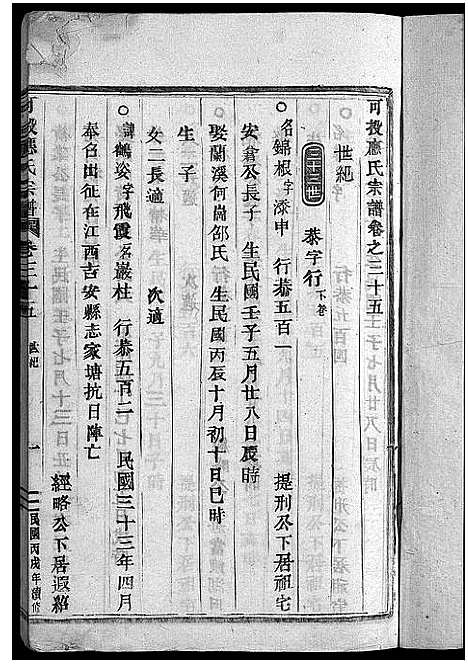 可投應氏宗譜卷之三十五
世紀
三十三世
恭字行下卷
○名錦根字添申 行恭五百一 提刑公下居祖宅
安倉公長子 生民國壬子五月廿八日辰時
娶蘭溪何崗邵氏 生民國丙辰十月初十日巳時
生一子
女二長適 次適
○諱鶴姿字飛霞名巖柱 行恭五百二 民國三十三年四月
奉召出征在江西吉安縣志家塘抗日陣亡
經略公下居遐紹
可投應氏宗譜 卷三十五 世紀 一 民國丙戌年續修